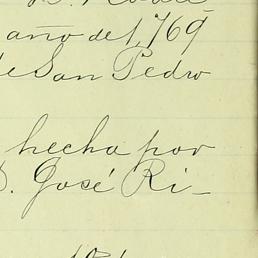 año del, 769
de San Pedro
hecha por
D. José Ri-